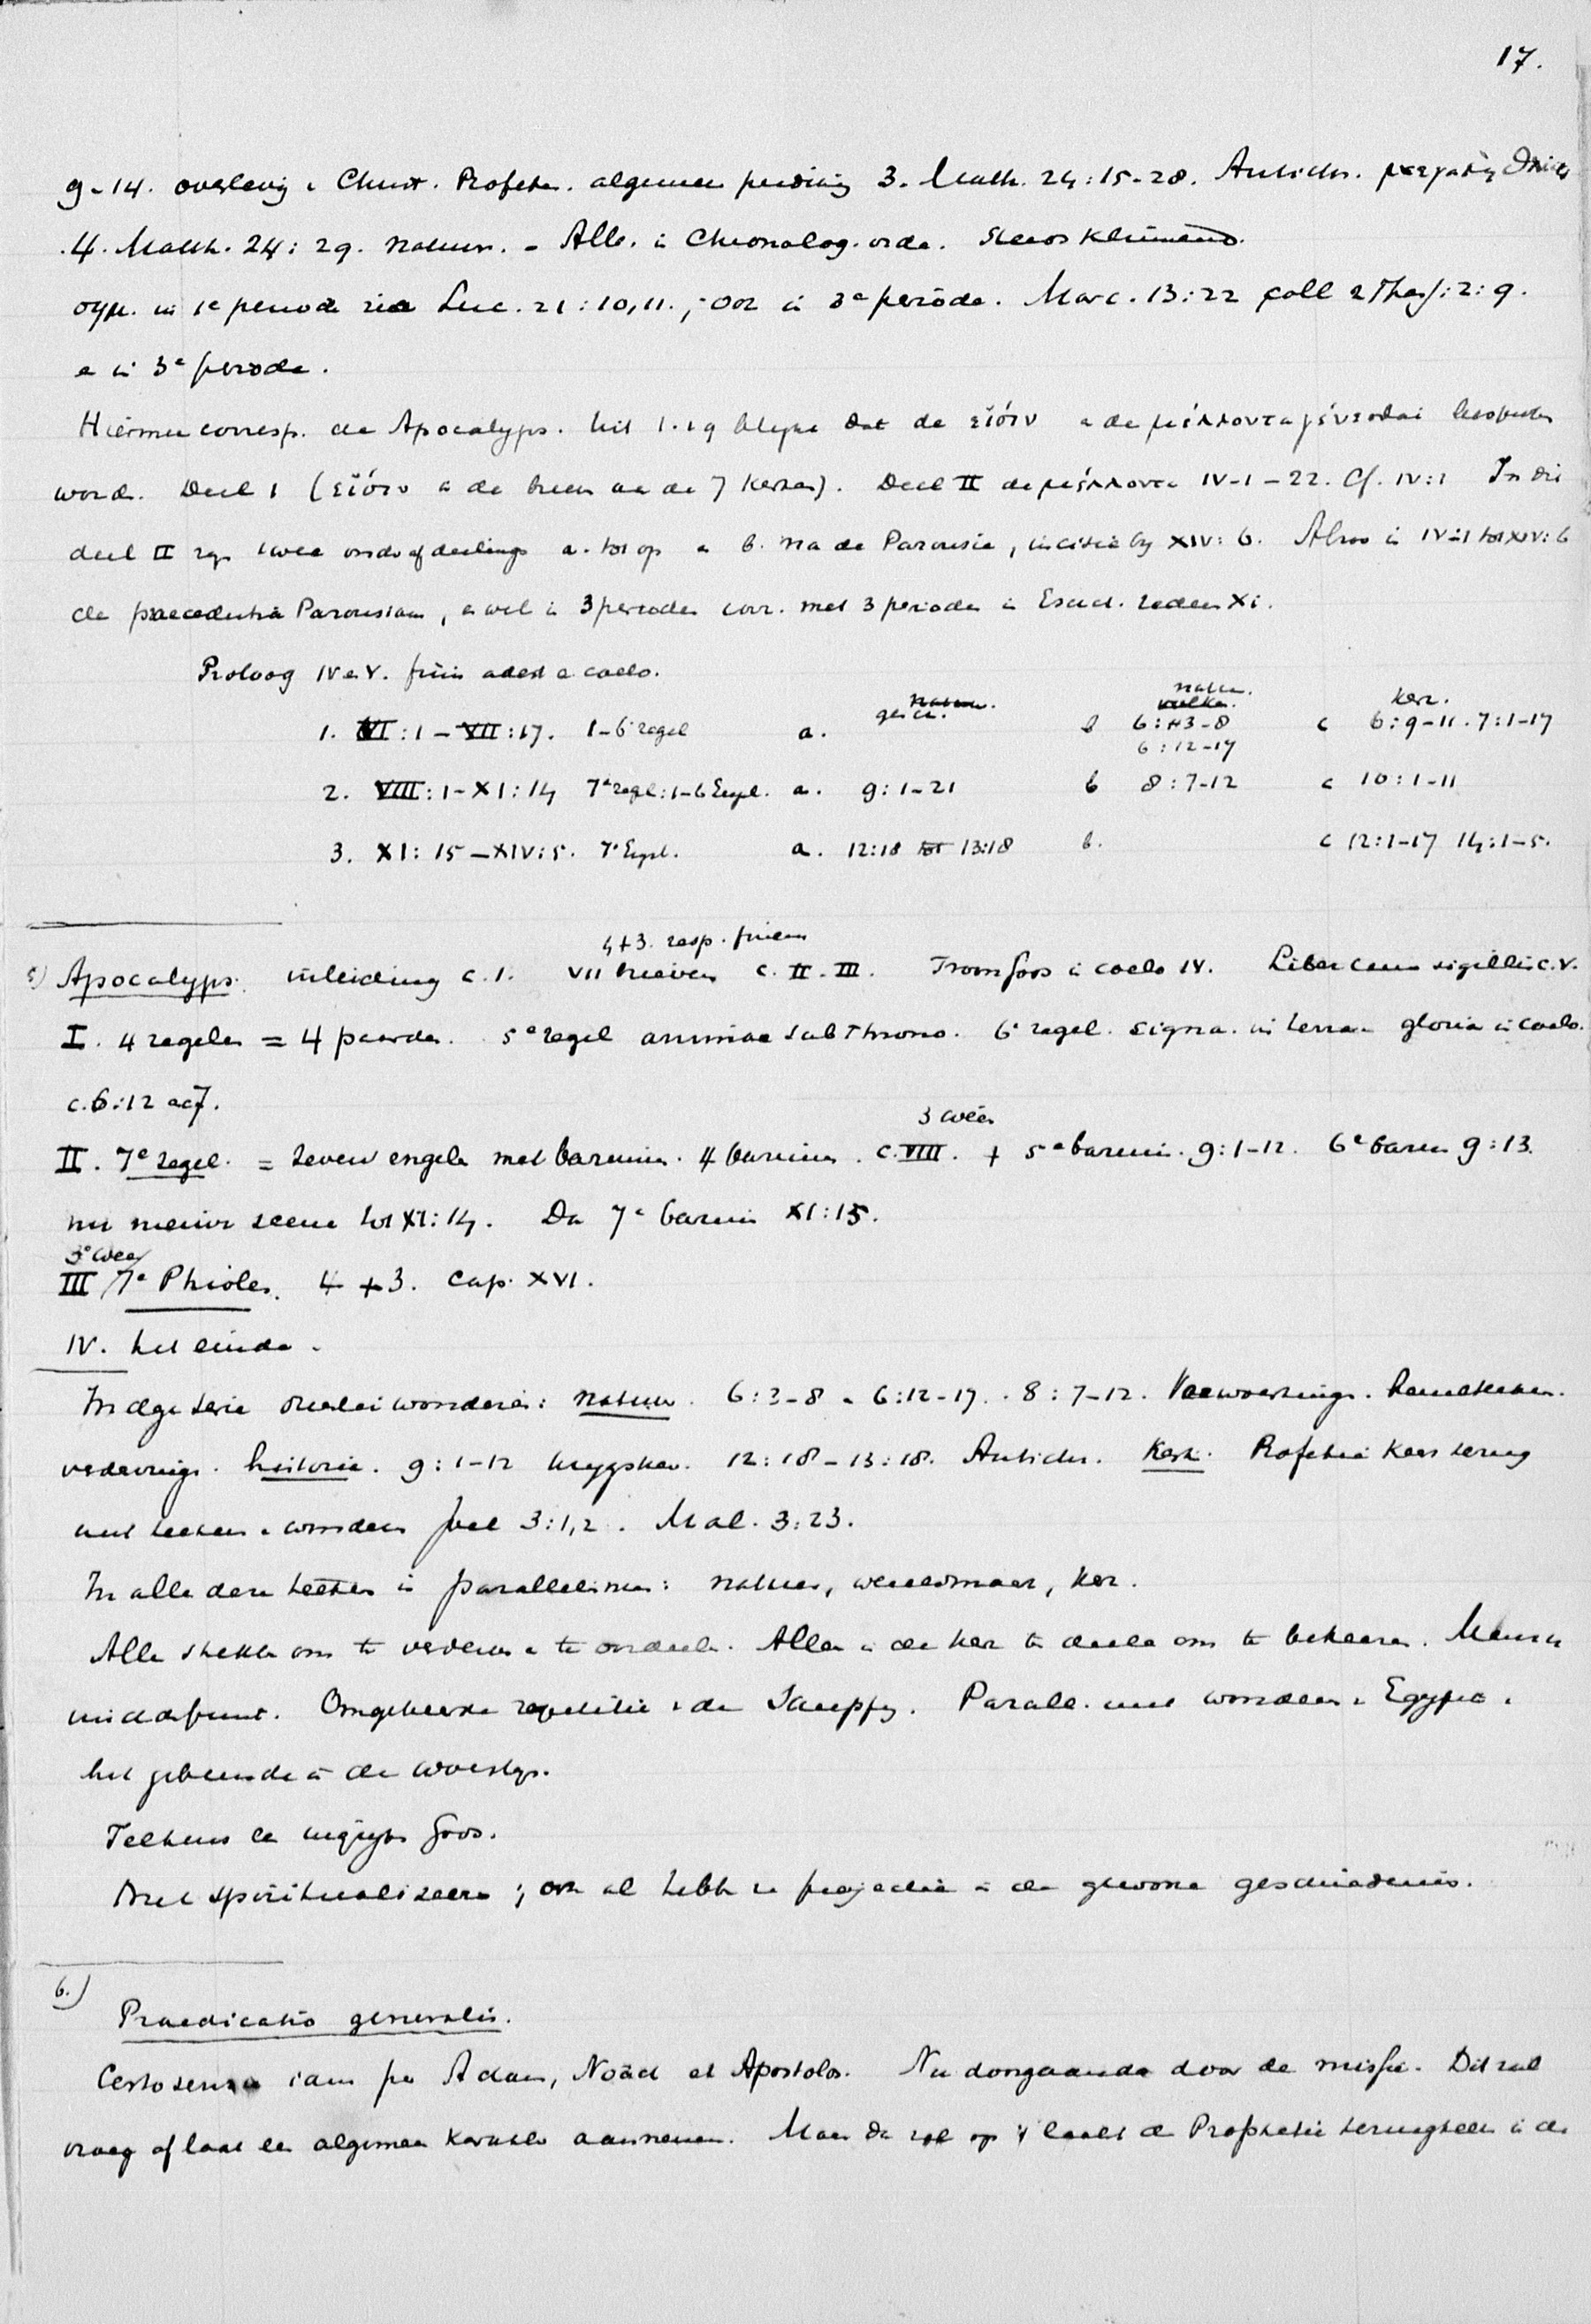 17.
9-14. overlevg v Christ. Profeten. algemeen prediking 3. Matth. 24:15-28. Antichr. μεγάλη θλίψις
4. Matth. 24:29. natuur. - Alle. in Chronolog. orde. Steeds klimmend.
σημ. in 1e periode zie Luc. 21:10,11.; ook in 3e periode. Marc. 13:22 coll 2 Thess: 2:9.
e in 3e periode.
Hiermee corresp. de Apocalyps. Uit 1.19 blijkt dat de εἰσίν e de μέλλοντα γένεσθαι besproken
word. Deel 1 (εἰσίν in de brieven aan de 7 kerken). Deel II de μέλλοντα IV-1-22. Cf. IV:1 In dit
deel II zijn twee onderafdeelings a. tot op e b. na de Parousie, incisie by XIV:6. Alzoo in IV:1 tot XIV:6
de praecedentia Parousiam, e wel in 3 perioden corr. met 3 perioden in Eschat. reden XI.
Proloog IV e V. finis adest e coelo.
natuur. natuur. kerk.
gesch. volken.
1. VI:1-VII:17. 1-6 zegel a. b 6:3-8 c 6:9-11. 7:1-17
6:12-17
2. VIII:1-XI:14 7e zegel: 1-6 Engel. a. 9:1-21 b 8:7-12 c 10:1-11
3. XI:15-XIV:5. 7e Engel. a. 12:18 tot 13:18 b. c 12:1-17 14:1-5.
4+3. resp. finem
5) Apocalyps. inleiding c.1. VII brieven c. II-III. Troon Gods in coelo IV. Liber cum sigillis c.V.
I. 4 zegelen = 4 paarden. 5e zegel animae sub Throno. 6e zegel. signa. in terra e gloria in coelo.
c.6:12 ac7.
3 weën
II. 7e zegel. = zeven engelen met bazuinen. 4 bazuinen. c. VIII. + 5e bazuin. 9:1-12. 6e bazuin 9:13.
nu nieuwe scene tot XI:14. Dan 7e bazuin XI:15.
3e wee
III 7e Phiolen. 4+3. Cap. XVI.
IV. het einde.
In deze serie drieërlei wonderen: natuur. 6:3-8 e 6:12-17. 8:7-12. Verwoestings.
historie. 9:1-12 12:18-13:18. Antichr. Kerk. Profetie keert terug
met teeken e wonderen Joel 3:1,2. Mal. 3:23.
In alle deze teeken is parallelisme: natuur, wereldmacht, kerk.
Alle strekken om te verderven e te oordeelen. Alleen in de kerk ten deele om te bekeeren. Mensch
middelpunt. Omgekeerde repetitie v de Schepping. Parall. met wonderen v Egypte e
het gebeurde in de woestijn.
Telkens het ingrijpen Gods.
Niet spiritualiseeren; ook al hebben ze projectie in de gewone geschiedenis.
6.)
Praedicatio generalis.
Certo sensu iam per Adam, Noäch et Apostolos. Nu doorgaande door de missie. Dit zal
vroeg of laat een algemeen karakter aannemen. Maar dan zal op 't laatst de Prophetie terugkeeren in de